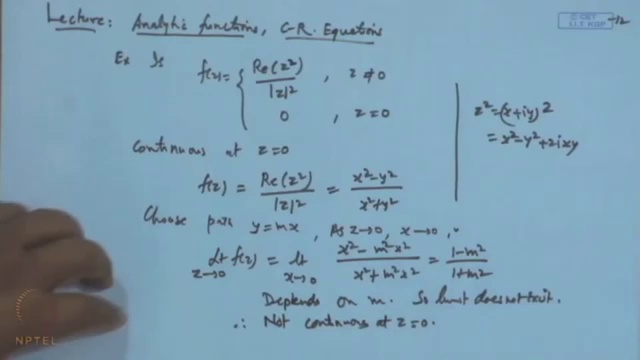 Lecture: Analytic functions, C-R. Equations
© CET
I.I.T. KGP
Ex Is f(z) = { Re(z²) / |z|² , z ≠ 0
0 , z = 0
Continuous at z=0
f(z) = Re(z²) / |z|² = (x²-y²) / (x²+y²)
Choose path y=mx , As z→0, x→0,
Lt z→0 f(z) = lt x→0 (x²-m²x²) / (x²+m²x²) = (1-m²) / (1+m²)
Depends on m. So limit does not exist.
∴ Not continuous at z=0.
z² = (x+iy)²
= x²-y²+2ixy
NPTEL